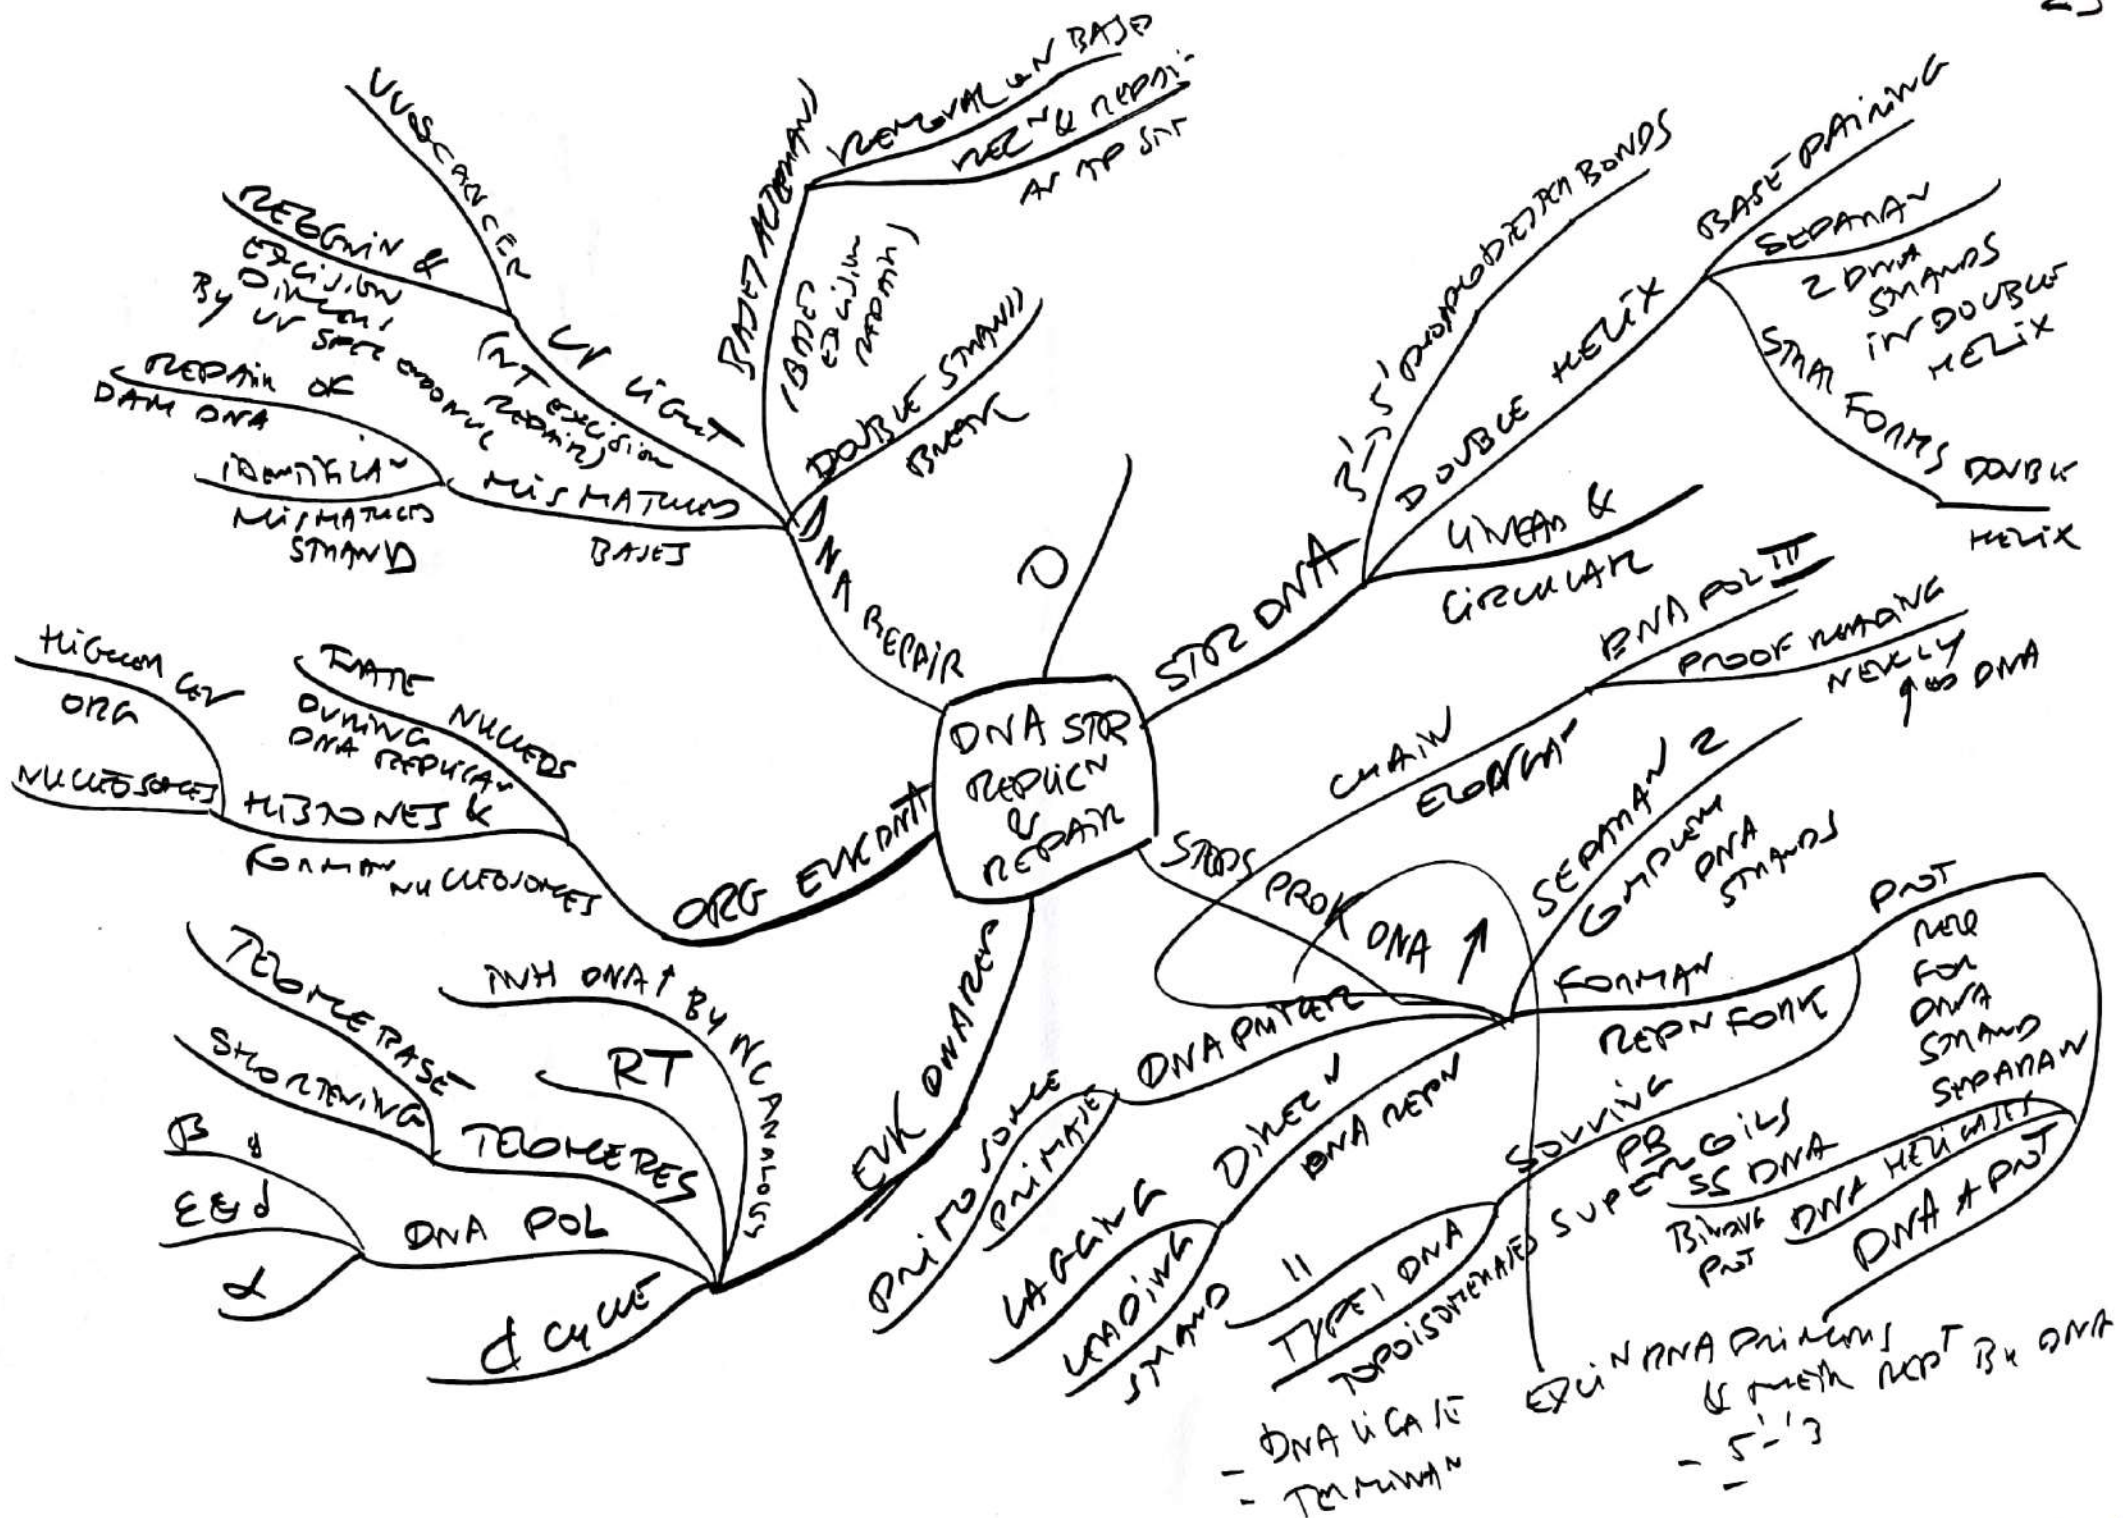 DNA STR
REPLICN
&
REPAIR
O
STR DNA
3'→5' PHOSPHODIESTER BONDS
DOUBLE HELIX
BASE PAIRING
SEPARAN
2 DNA
STRANDS
IN DOUBLE
HELIX
STRAL FORMS DOUBLE
HELIX
LINEAR &
CIRCULAR
STEPS PROK DNA ↑
CHAIN
ELONGAN
DNA POL III
PROOF READING
NEWLY
DNA
SEPARAN 2
COMPLEM
DNA
STRANDS
FORMAN
REPN FORK
PROT
REQ
FOR
DNA
STRAND
SEPARAN
DNA A PROT
DNA HELICASES
SS DNA
BINDING
PROT
SOLVING
PB
SUPERCOILS
TYPE I DNA
TOPOISOMERASES
II
DIRECN
DNA REPN
LAGGING
LEADING
STRAND
DNA PRIMER
PRIMOSOME
PRIMASE
EXCIN RNA PRIMERS
& THEIR REPT BY DNA
- 5'-'3
-
- DNA LIGASE
- TERMINAN
EUK DNA REP
INH DNA ↑ BY NC ANALOGS
RT
TELOMERES
TELOMERASE
SHORTENING
DNA POL
β γ
ε & δ
α
CYCLE
ORG EUK DNA
FATE NUCLEOS
DURING
DNA REPLICAN
HISTONES &
FORMAN NUCLEOSOMES
HIGHER LEV
ORG
NUCLEOSOMES
DNA REPAIR
MISMATCHED
BASES
REPAIR OF
DAM DNA
IDENTIFICAN
MISMATCHED
STRAND
UV LIGHT
(NT EXCISION
REPAIR)
UV & CANCER
RECOGNIN &
EXCISION
DIMERS
BY UV SPEC ENDONUC
BASES ALTERANS
(BASES
EXCISION
REPAIR)
REMOVAL ABN BASES
RECN & REPAI-
AT AP SIT
DOUBLE STRANDS
BREAK